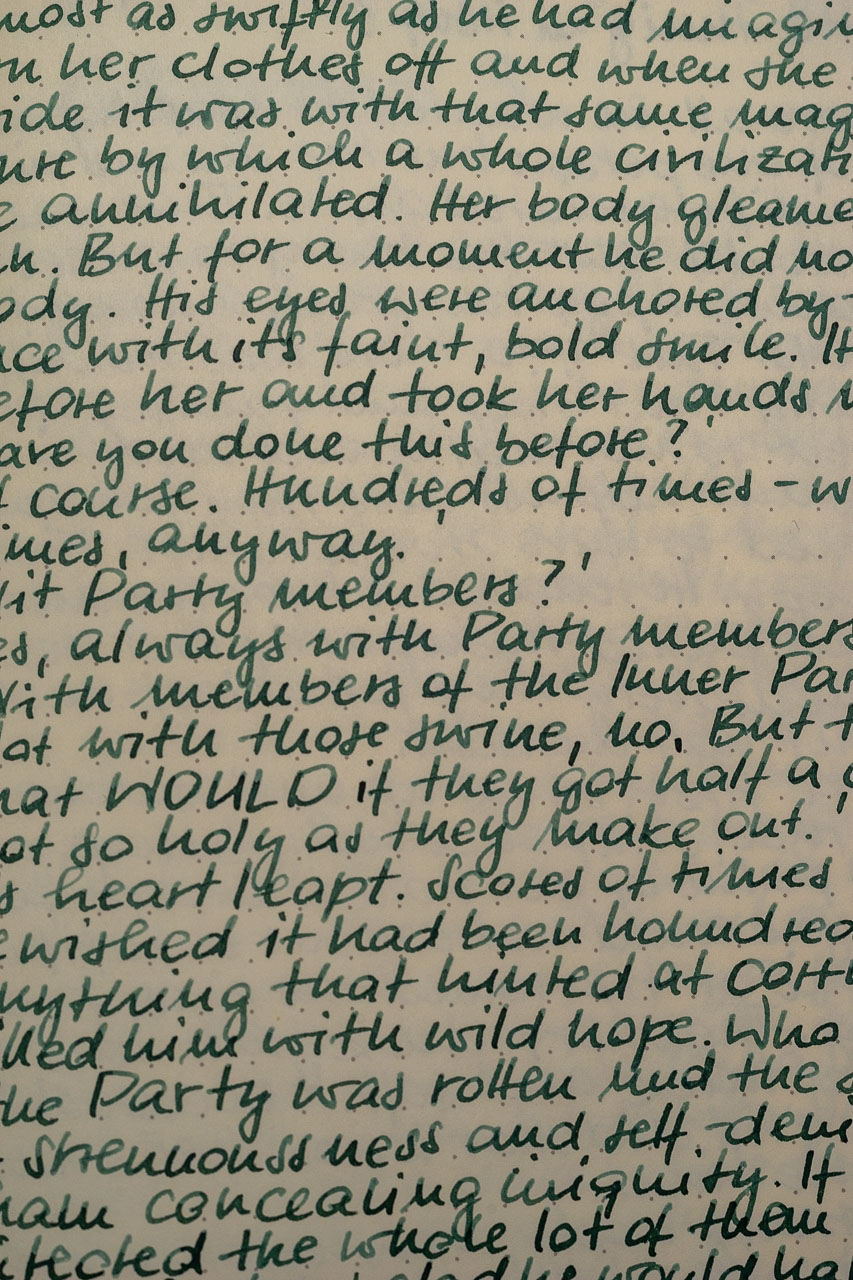 most as swiftly as he had imagin
n her clothes off and when she
ide it was with that same mag
ure by which a whole civilizati
e annihilated. Her body gleame
n. But for a moment he did no
ody. His eyes were anchored by
ace with its faint, bold smile. H
efore her and took her hands
ave you done this before?'
f course. Hundreds of times - w
imes, anyway.'
it Party members?'
es, always with Party members
With members of the Inner Par
ot with those swine, no. But t
hat WOULD if they got half a c
ot so holy as they make out.'
s heart leapt. Scores of times
e wished it had been houndred
nything that hinted at corr
lled him with wild hope. Who
the Party was rotten und the s
strenuouss ness and self-deni
ham concealing iniquity. If
fected the whole lot of them
he would ha